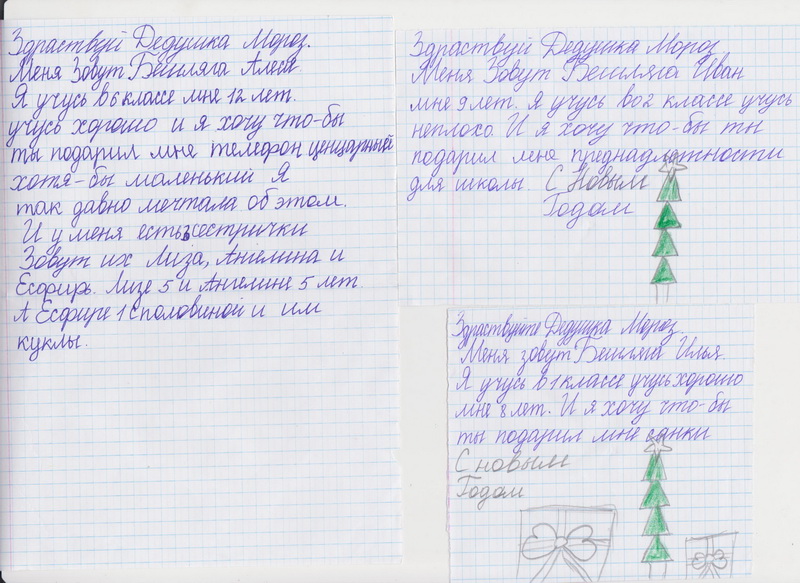 Здраствуй Дедушка Мороз.
Меня Зовут Бешляга Алеся.
Я учусь в 6 классе мне 12 лет.
учусь хорошо и я хочу что-бы
ты подарил мне телефон ценцарный
хотя-бы маленький Я
так давно мечтала об этом.
И у меня есть 3 сестрички
Зовут их Лиза, Ангелина и
Есфирь. Лизе 5 и Ангелине 5 лет.
А Есфире 1 с половиной и им
куклы.
Здраствуй Дедушка Мороз
Меня Зовут Бешляга Иван
мне 9 лет. Я учусь во 2 классе учусь
неплохо. И я хочу что-бы ты
подарил мне преднадлжтности
для школы. С Новым
Годом
Здраствуйте Дедушка Мороз
Меня зовут Бешляга Илья.
Я учусь в 1 классе учусь хорошо
мне 8 лет. И я хочу что-бы
ты подарил мне санки
С новым
Годом